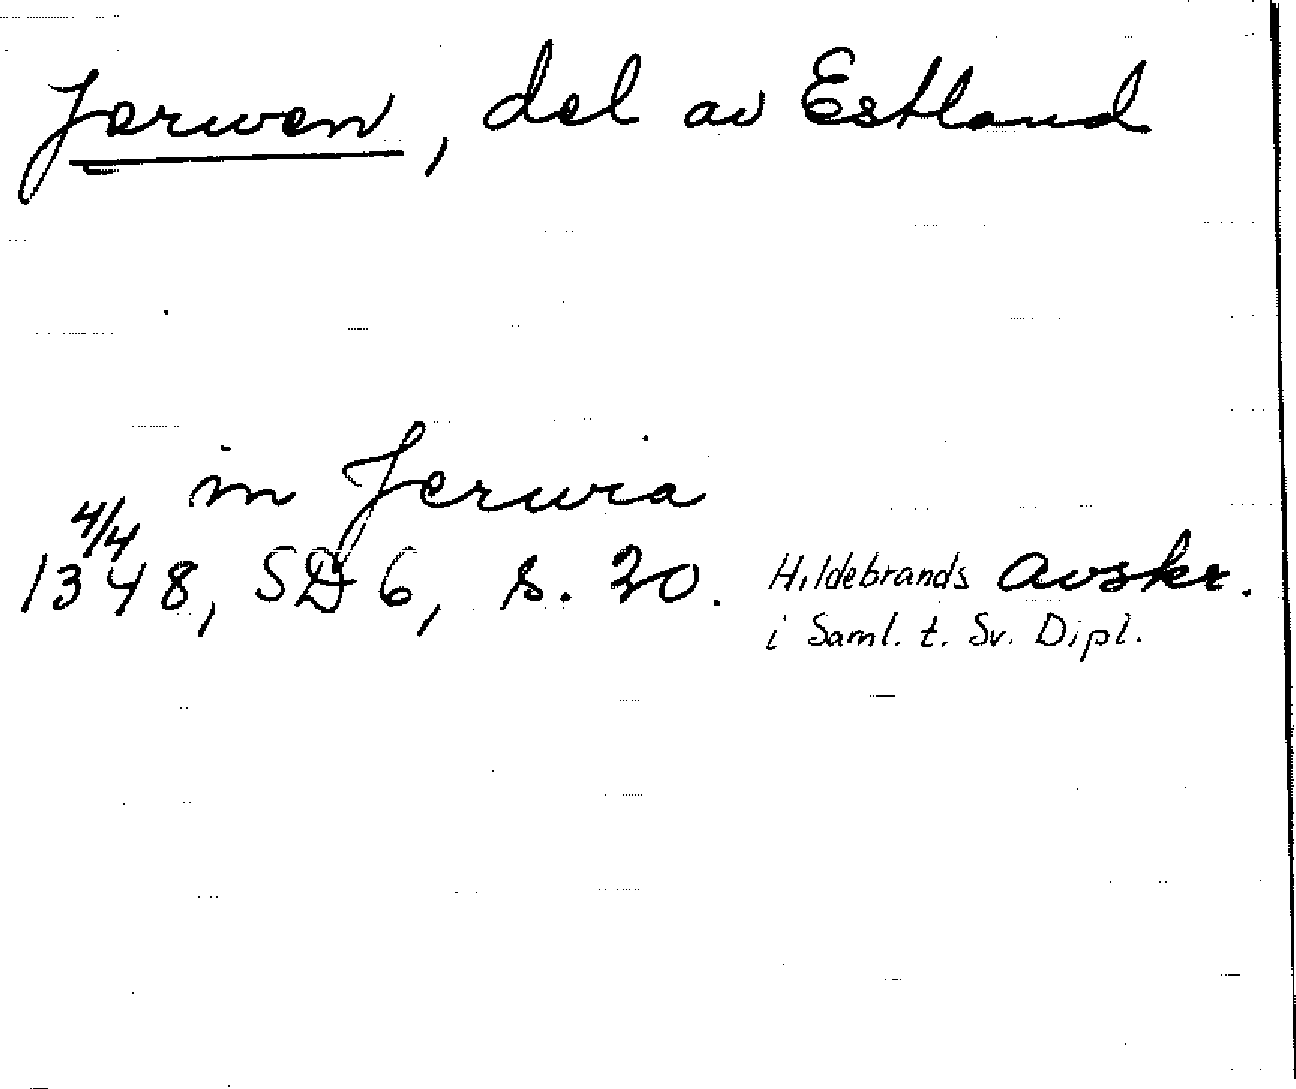 Jerwen, del av Estland
in Jerwia
4/4
1348, SD 6, s. 30. Hildebrands avskr.
i Saml. t. Sv. Dipl.